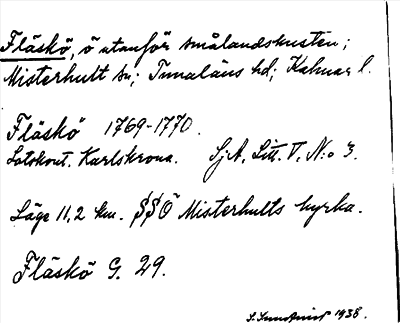 Fläskö, ö utanför smålandskusten;
Misterhult sn; Tunaläns hd; Kalmar l.
Fläskö 1769-1770.
Lotskont. Karlskrona. SjA, Litt. V, N:o 3.
Läge 11,2 km. SSÖ Misterhults kyrka.
Fläskö G. 29.
1938.